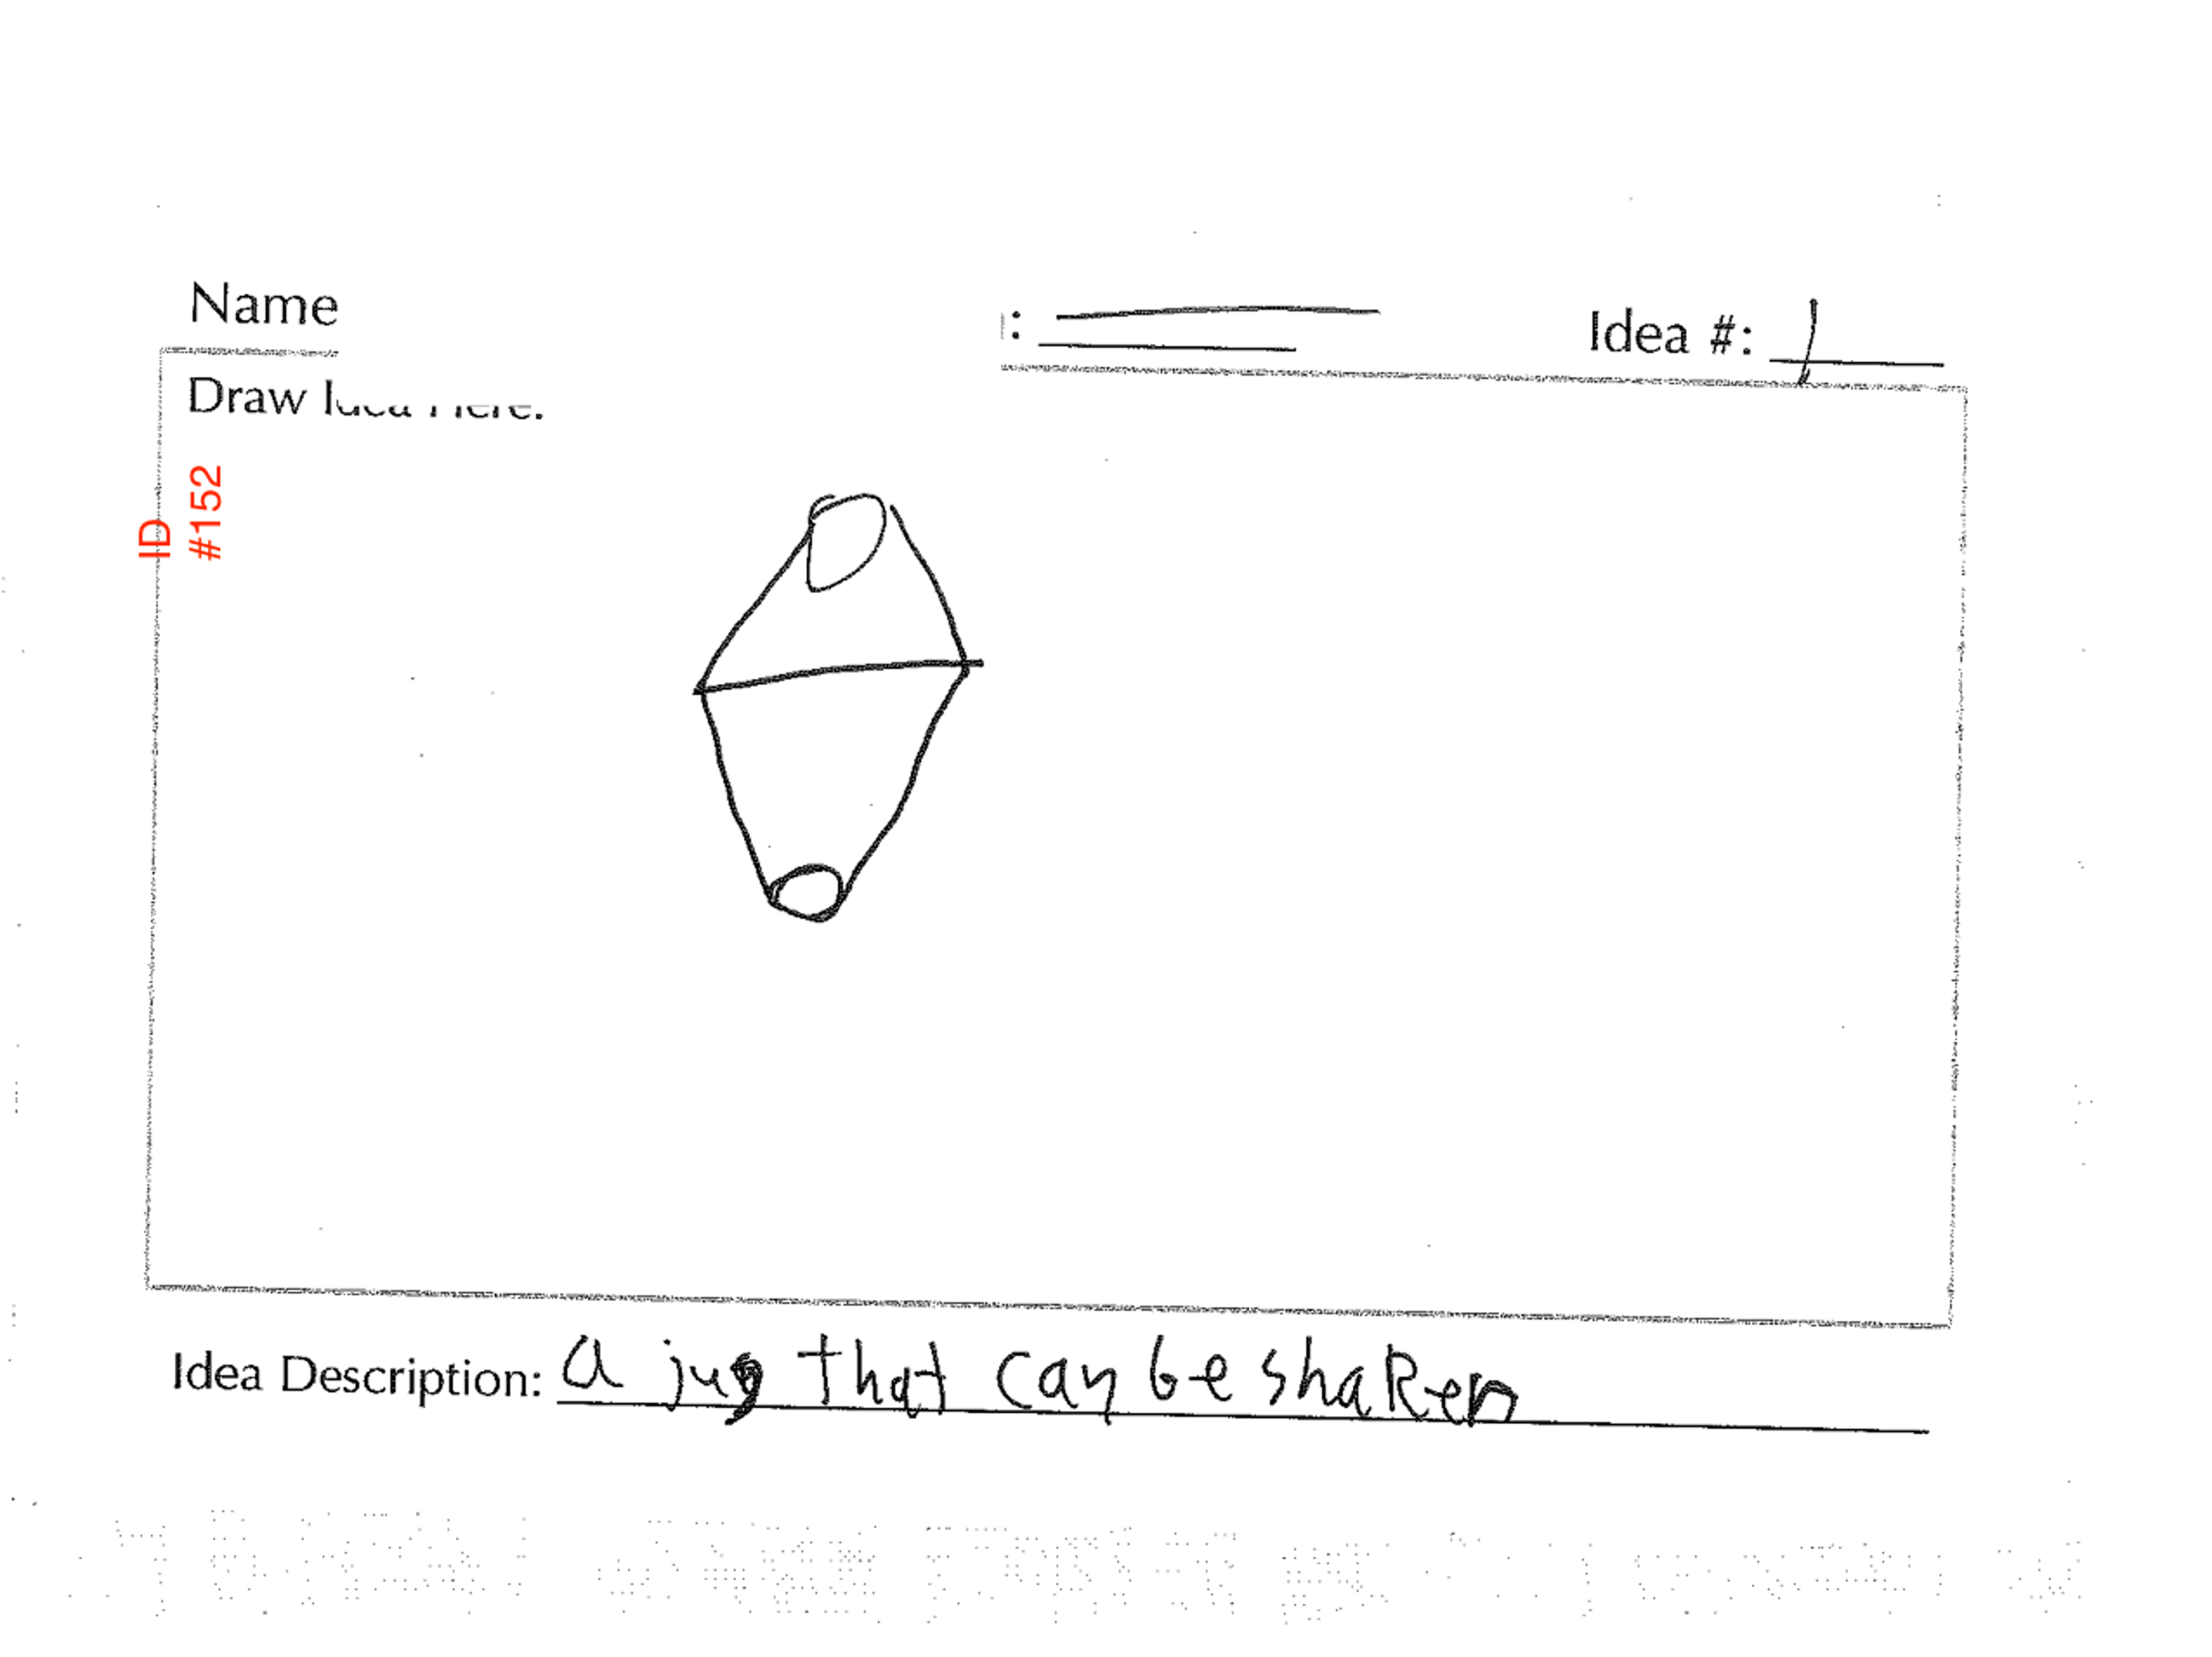 Name : Idea #: 1
Draw Idea Here:
ID
#152
Idea Description: a jug that can be shaken